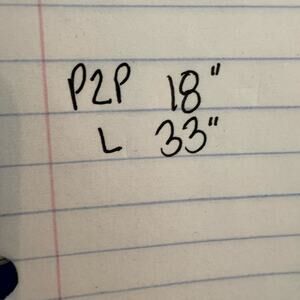 P2P 18"
L 33"